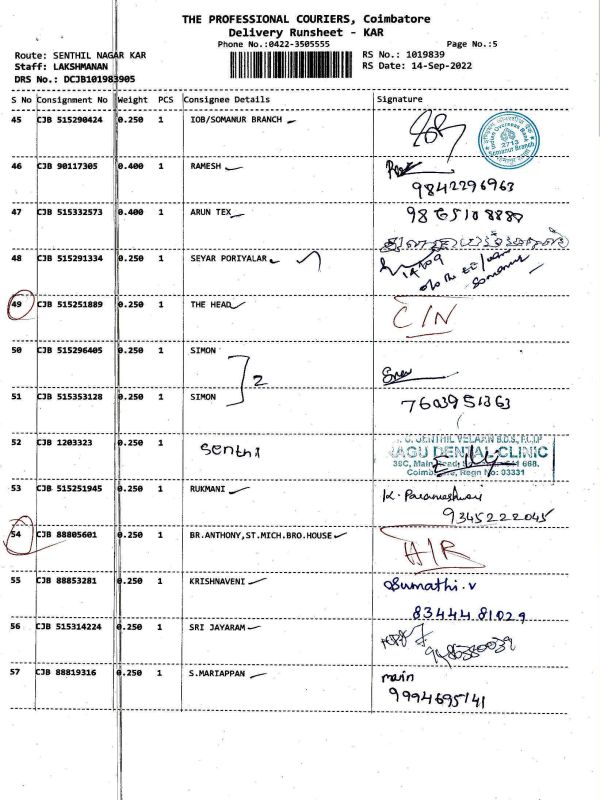 THE PROFESSIONAL COURIERS, Coimbatore
Delivery Runsheet - KAR
Phone No.:0422-3505555 Page No.:5
Route: SENTHIL NAGAR KAR RS No.: 1019839
Staff: LAKSHMANAN RS Date: 14-Sep-2022
DRS No.: DCJB101983905
S No Consignment No Weight PCS Consignee Details Signature
45 CJB 515290424 0.250 1 IOB/SOMANUR BRANCH
Indian Overseas Bank
2713
Somanur Branch
46 CJB 90117305 0.400 1 RAMESH
9842296963
47 CJB 515332573 0.400 1 ARUN TEX 98 65108880
48 CJB 515291334 0.250 1 SEYAR PORIYALAR
Somanur
49 CJB 515251889 0.250 1 THE HEAD C/N
50 CJB 515296405 0.250 1 SIMON
2
51 CJB 515353128 0.250 1 SIMON 7603951363
52 CJB 1203323 0.250 1 Senthil
SENTHIL VELAAN B.D.S.,
DENTAL CLINIC
39C, Main Road, 641 668.
Coimbatore, Regn No: 03331
53 CJB 515251945 0.250 1 RUKMANI K. Parameshwari
9345222045
54 CJB 88805601 0.250 1 BR.ANTHONY,ST.MICH.BRO.HOUSE A/R
55 CJB 88853281 0.250 1 KRISHNAVENI Sumathi.v
83444 81029
56 CJB 515314224 0.250 1 SRI JAYARAM
57 CJB 88819316 0.250 1 S.MARIAPPAN
9994695141